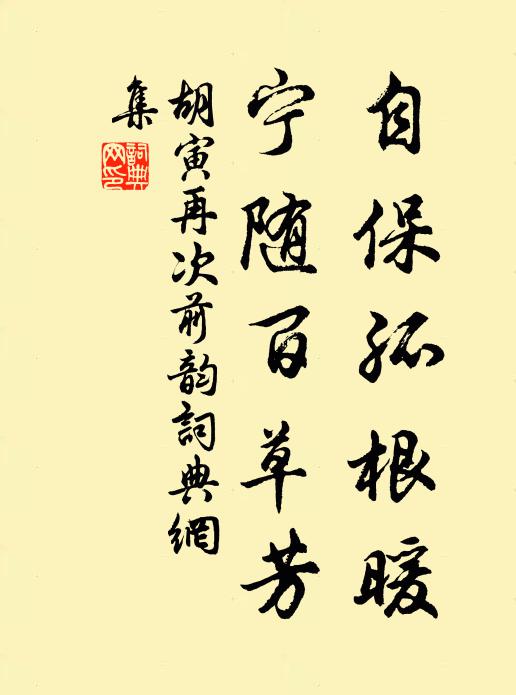 自保孤根暖
宁随百草芳
胡寅再次前韵詞典網
集
詞典網印